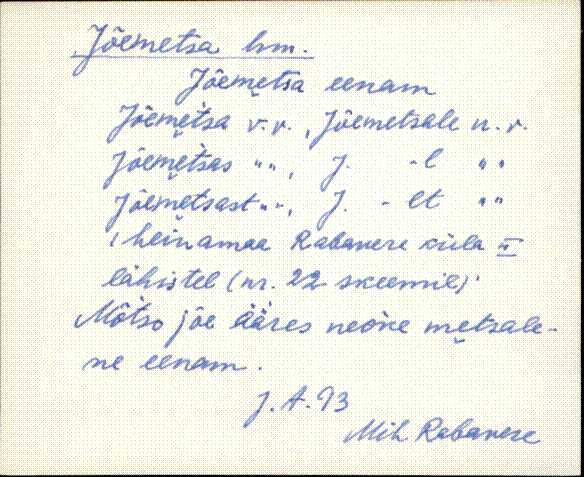 Jõemetsa hm.
Jõemetsa eenam
Jõemetsa v.v., Jõemetsale n.v.
Jõemetsas "", J. -l ""
Jõemetsast "", J. - lt ""
(heinamaa Rabavere küla II
lähistel (nr. 22 skeemil)
Mõtso jõe ääres neoke metsale-
ne eenam.
J. A. 93
Mih Rabavere